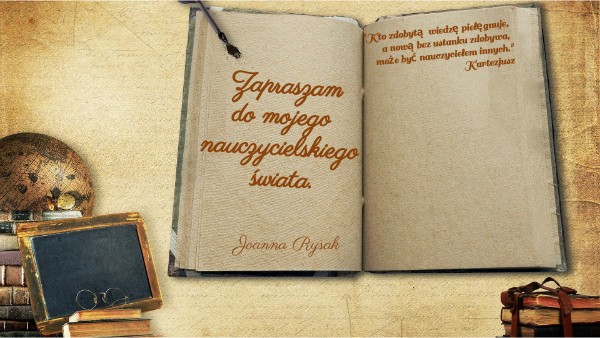 Zapraszam
do mojego
nauczycielskiego
świata.
Joanna Rysak
"Kto zdobytą wiedzę pielęgnuje,
a nową bez ustanku zdobywa,
może być nauczycielem innych."
Kartezjusz